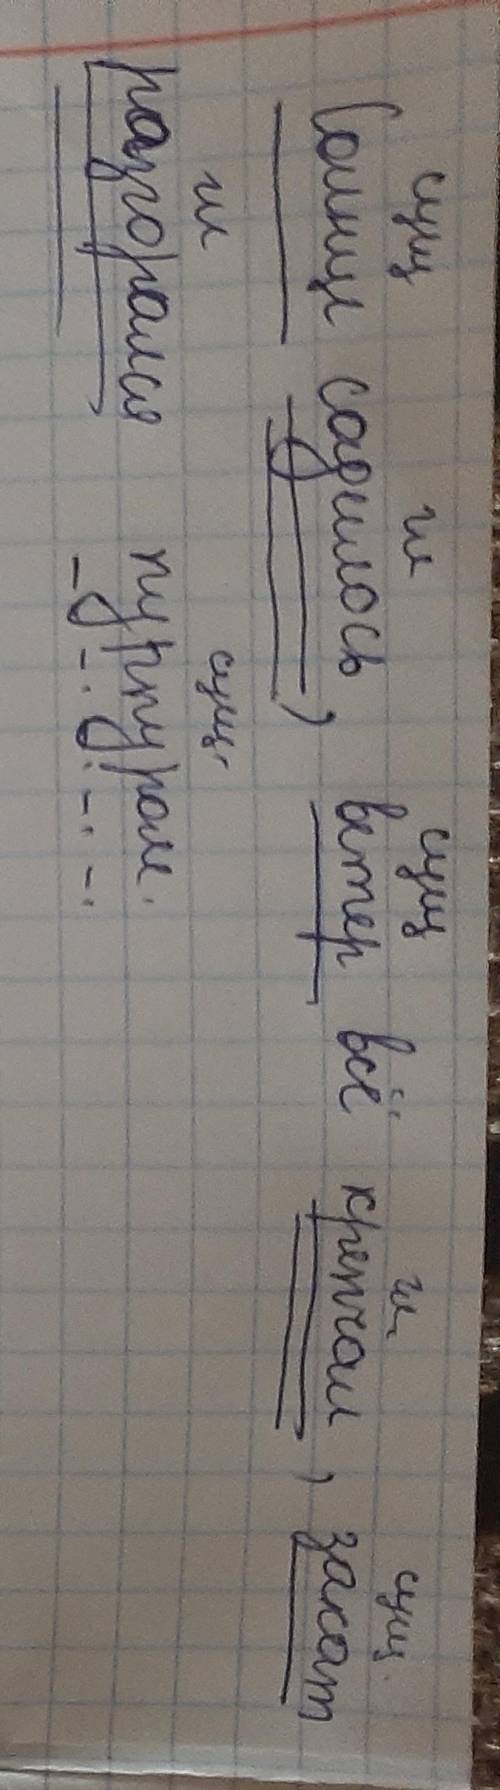 сущ гл сущ гл. сущ.
Солнце садилось, ветер всё крепчал, закат
гл сущ.
разгорался пурпуром.